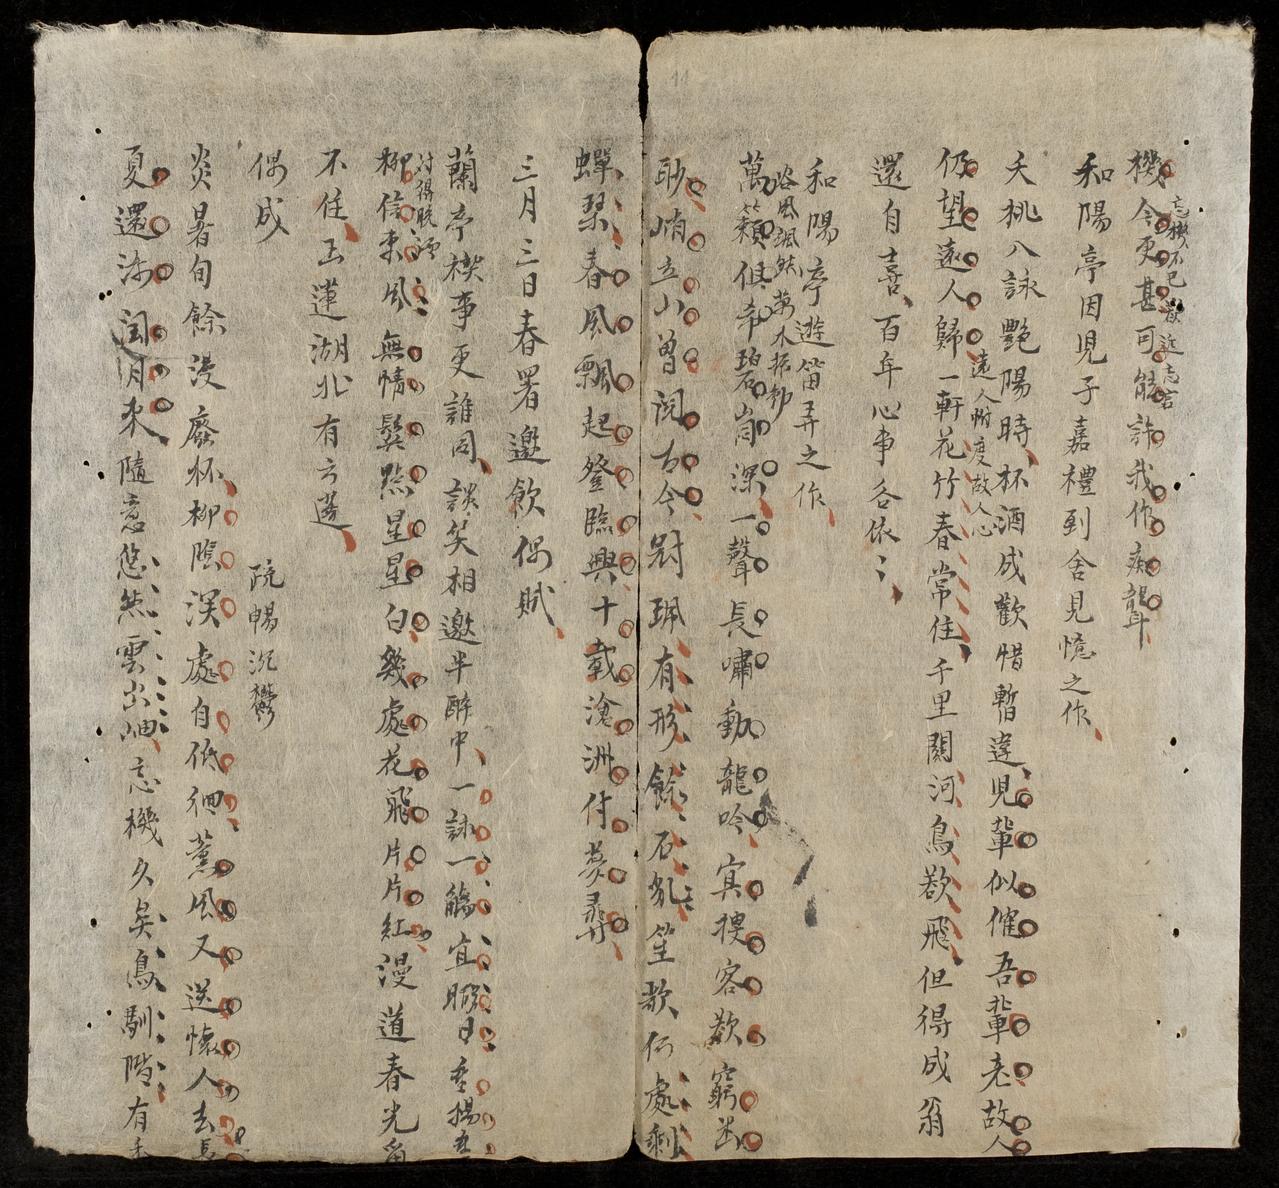 機今更甚可能許我作痴聾
忘機不已
和陽亭因見子嘉禮到舍見憶之作
夭桃入詠艷陽時杯酒成歡惜暫違兒輩似催吾輩老故人
仍望遠人歸一軒花竹春常住千里關河鳥欲飛但得成翁
遠人附度故人心
還自喜百年心事各依〻
和陽亭遊笛弄之作
谷風颯然萬木振
萬籟俱希碧嵩深一聲長嘯動龍吟冥搜客欲窮
耿峭立山曾閱古今尉珮有形餘石乱笙歌何處剩
蟬琴春風飄起登臨興十載滄洲付夢尋
三月三日春署邀飲偶賦
蘭亭禊事更誰同談笑相邀半酔中一詠一觴宜
對得脱洒
柳信東風無情鬓點星星白幾處花飛片片紅漫道春光留
不住玉蓮湖北有
偶成
疏暢沉鬱
炎暑旬餘漫廢杯柳陰深處自低徊薰風又送懷人去
夏還沵閏月來隨意悠然雲出岫忘機久矣鳥馴階有